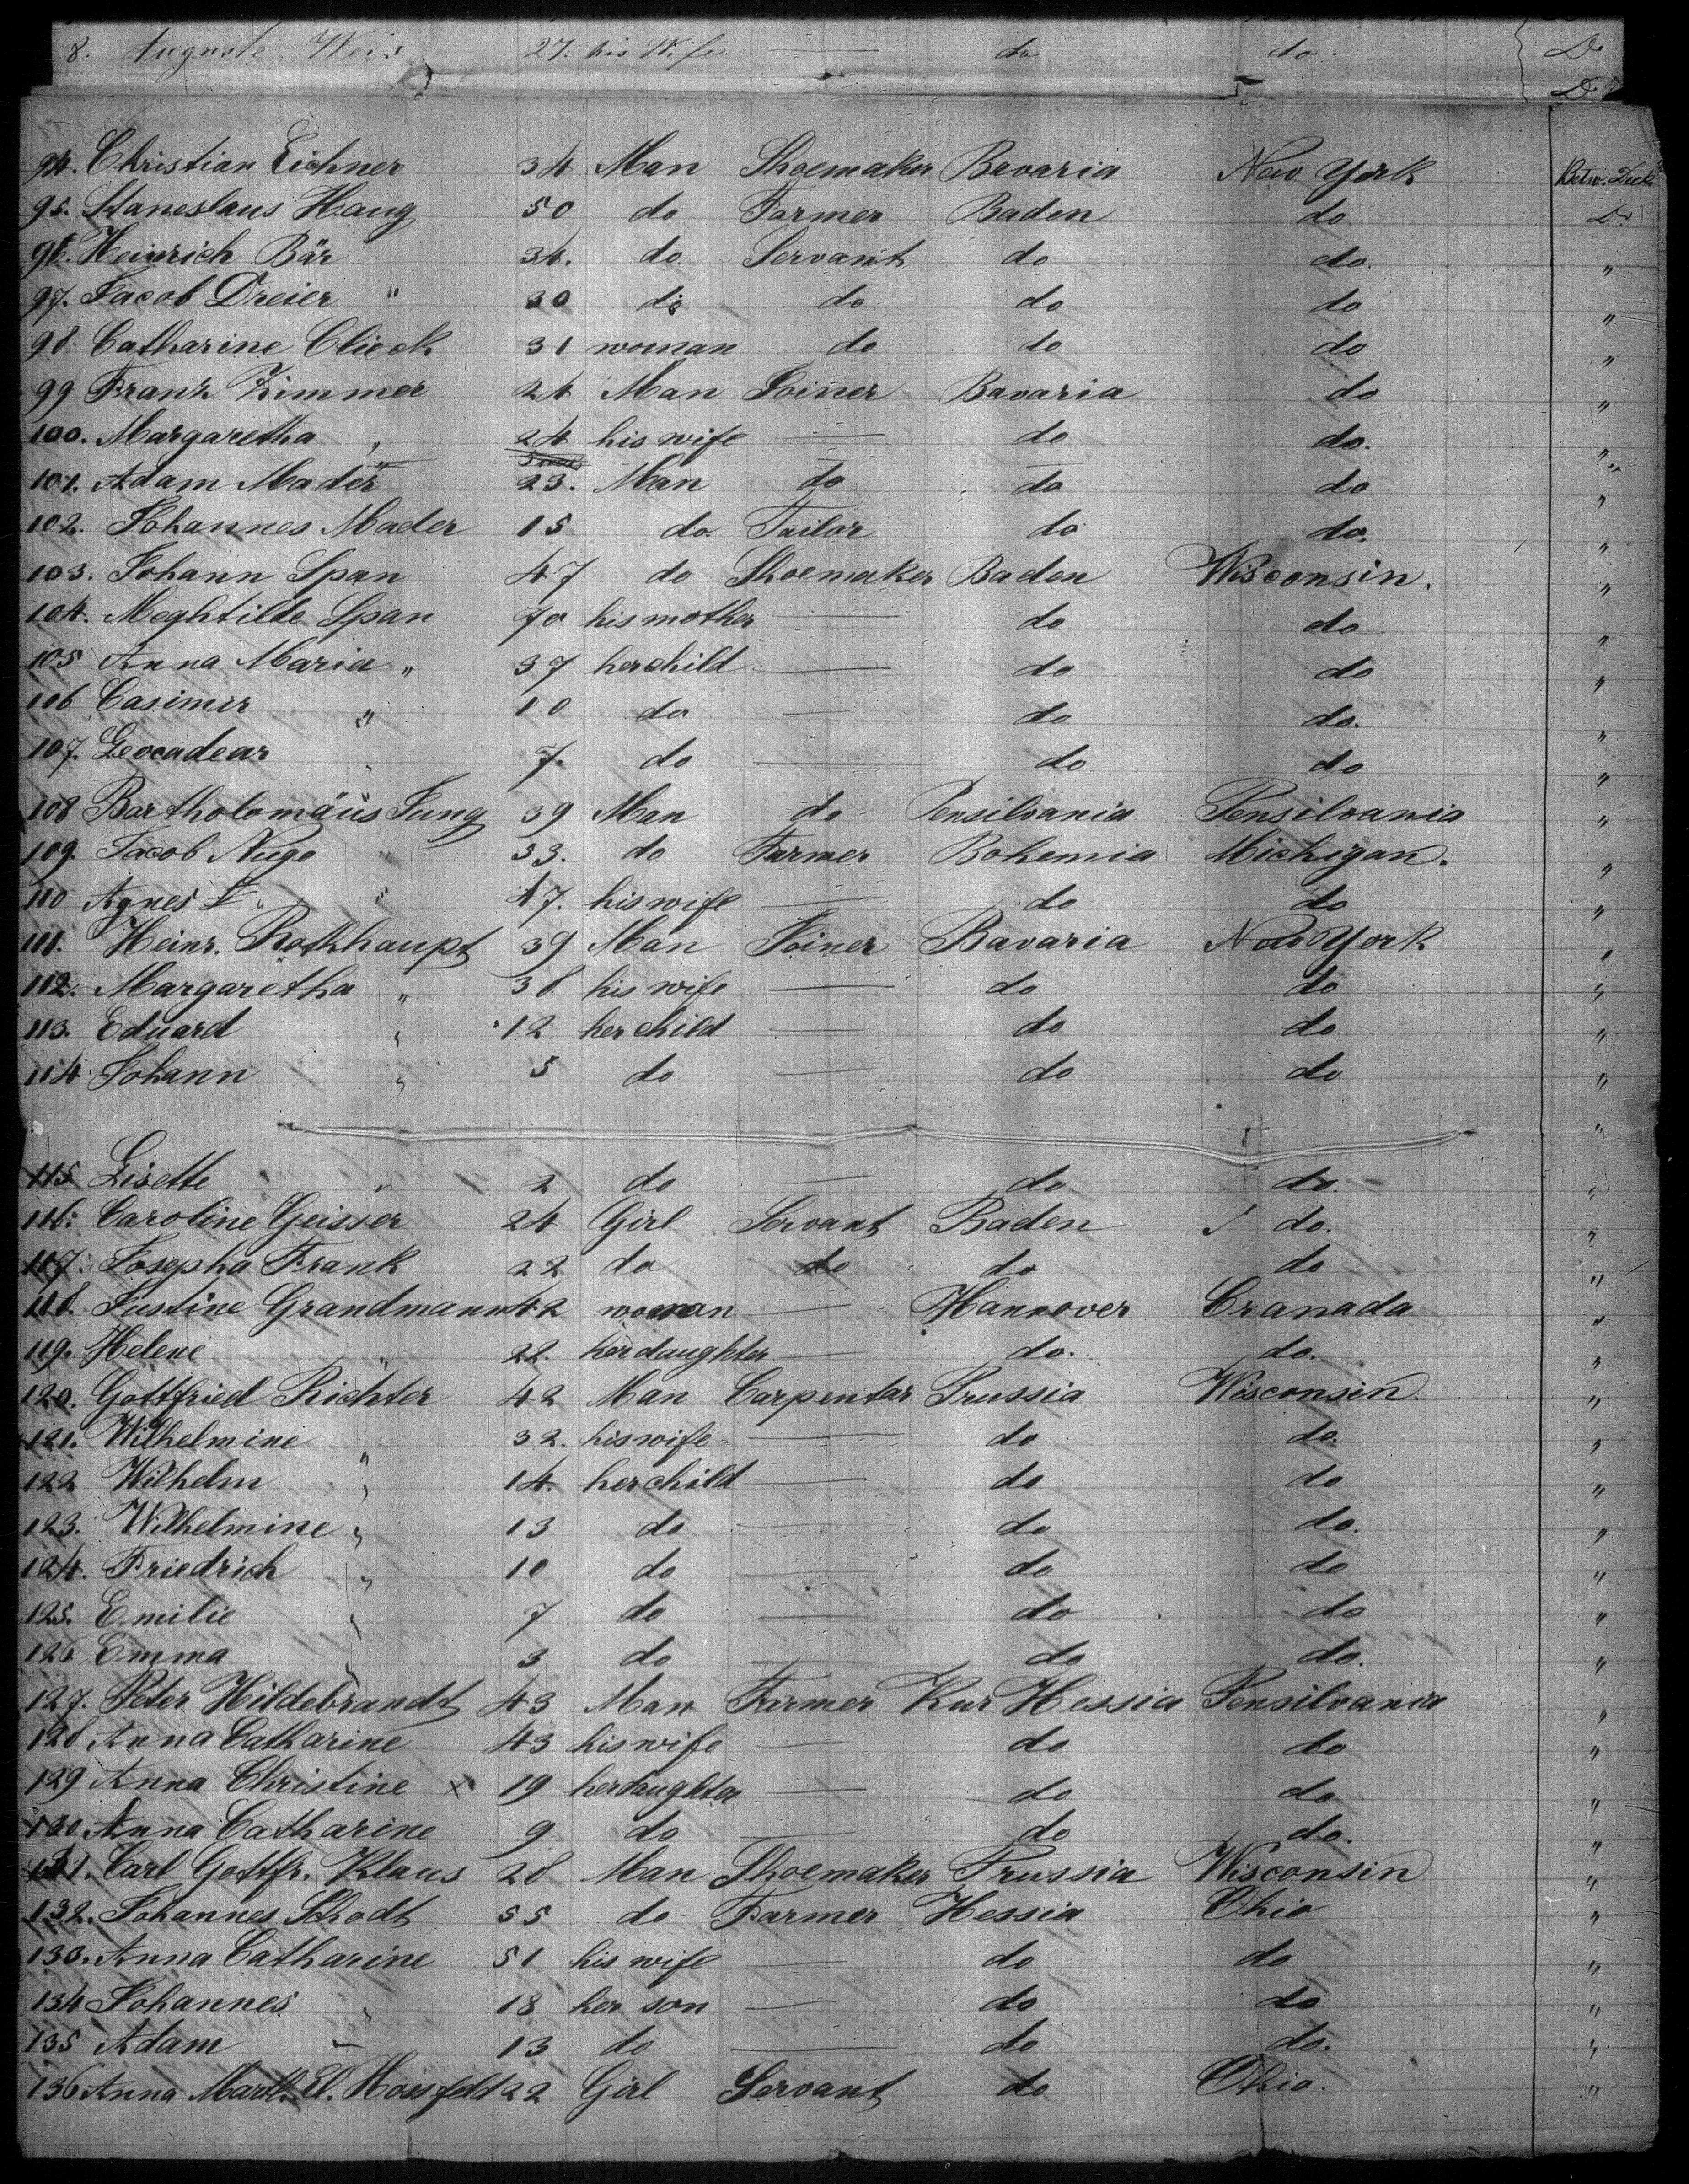 8. Auguste Weis 27. his Wife — do do. Do
Do
94. Christian Eichner 34 Man Shoemaker Bavaria New York Betw. Deck
95. Staneslaus Haug 50 do Farmer Baden do Do
96. Heinrich Bär 34. do Servant do do. "
97. Jacob Dreier " 30 do do do do "
98. Catharine Clieck 31 woman do do do "
99 Franz Zimmer 24 Man Joiner Bavaria do "
100. Margaretha " 24 his wife — do do. "
101. Adam Mader 23. Man do do do "
102. Johannes Mader 15 do. Tailor do do. "
103. Johann Span 47 do Shoemaker Baden Wisconsin. "
104. Meghtilde Span 70 his mother — do do "
105 Anna Maria " 37 her child — do do "
106 Casimir " 10 do — do do. "
107. Leocadear " 7. do — do do "
108 Bartholomäus Jung 39 Man do Pensilvania Pensilvania "
109. Jacob Nuge 33. do Farmer Bohemia Michigan. "
110 Agnes " 47. his wife — do do "
111. Heinr. Rothhaupt 39 Man Joiner Bavaria New York "
112. Margaretha " 38 his wife — do do "
113. Eduard " 12 her child — do do "
114 Johann " 5 do — do do "
"
115 Lisette " 2 do — do do. "
116. Caroline Geisser 24 Girl Servant Baden do. "
117. Josepha Frank 22 do do do do "
118. Justine Grandmann 42 woman — Hannover Cranada "
119. Helene " 22. her daughter — do. do. "
120. Gottfried Richter 42 Man Carpentar Prussia Wisconsin. "
121. Wilhelmine " 32. his wife — do do. "
122 Wilhelm " 14. her child — do do "
123. Wilhelmine " 13 do — do do. "
124. Friedrich " 10 do — do do "
125. Emilie " 7 do — do do "
126 Emma " 3 do — do do. "
127. Peter Hildebrandt 43 Man Farmer Kur Hessia Pensilvania "
128 Anna Catharine 43 his wife — do do "
129 Anna Christine x 19 her daughter — do do "
130 Anna Catharine 9 do — do do. "
131. Carl Gottfr. Klaus 28 Man Shoemaker Prussia Wisconsin "
132. Johannes Schodt 55 do Farmer Hessia Ohio "
133. Anna Catharine 51 his wife — do do "
134 Johannes " 18 her son — do do "
135 Adam " 13 do — do do. "
136 Anna Marth. El. Hoisfeldt 22 Girl Servant do Ohio. "